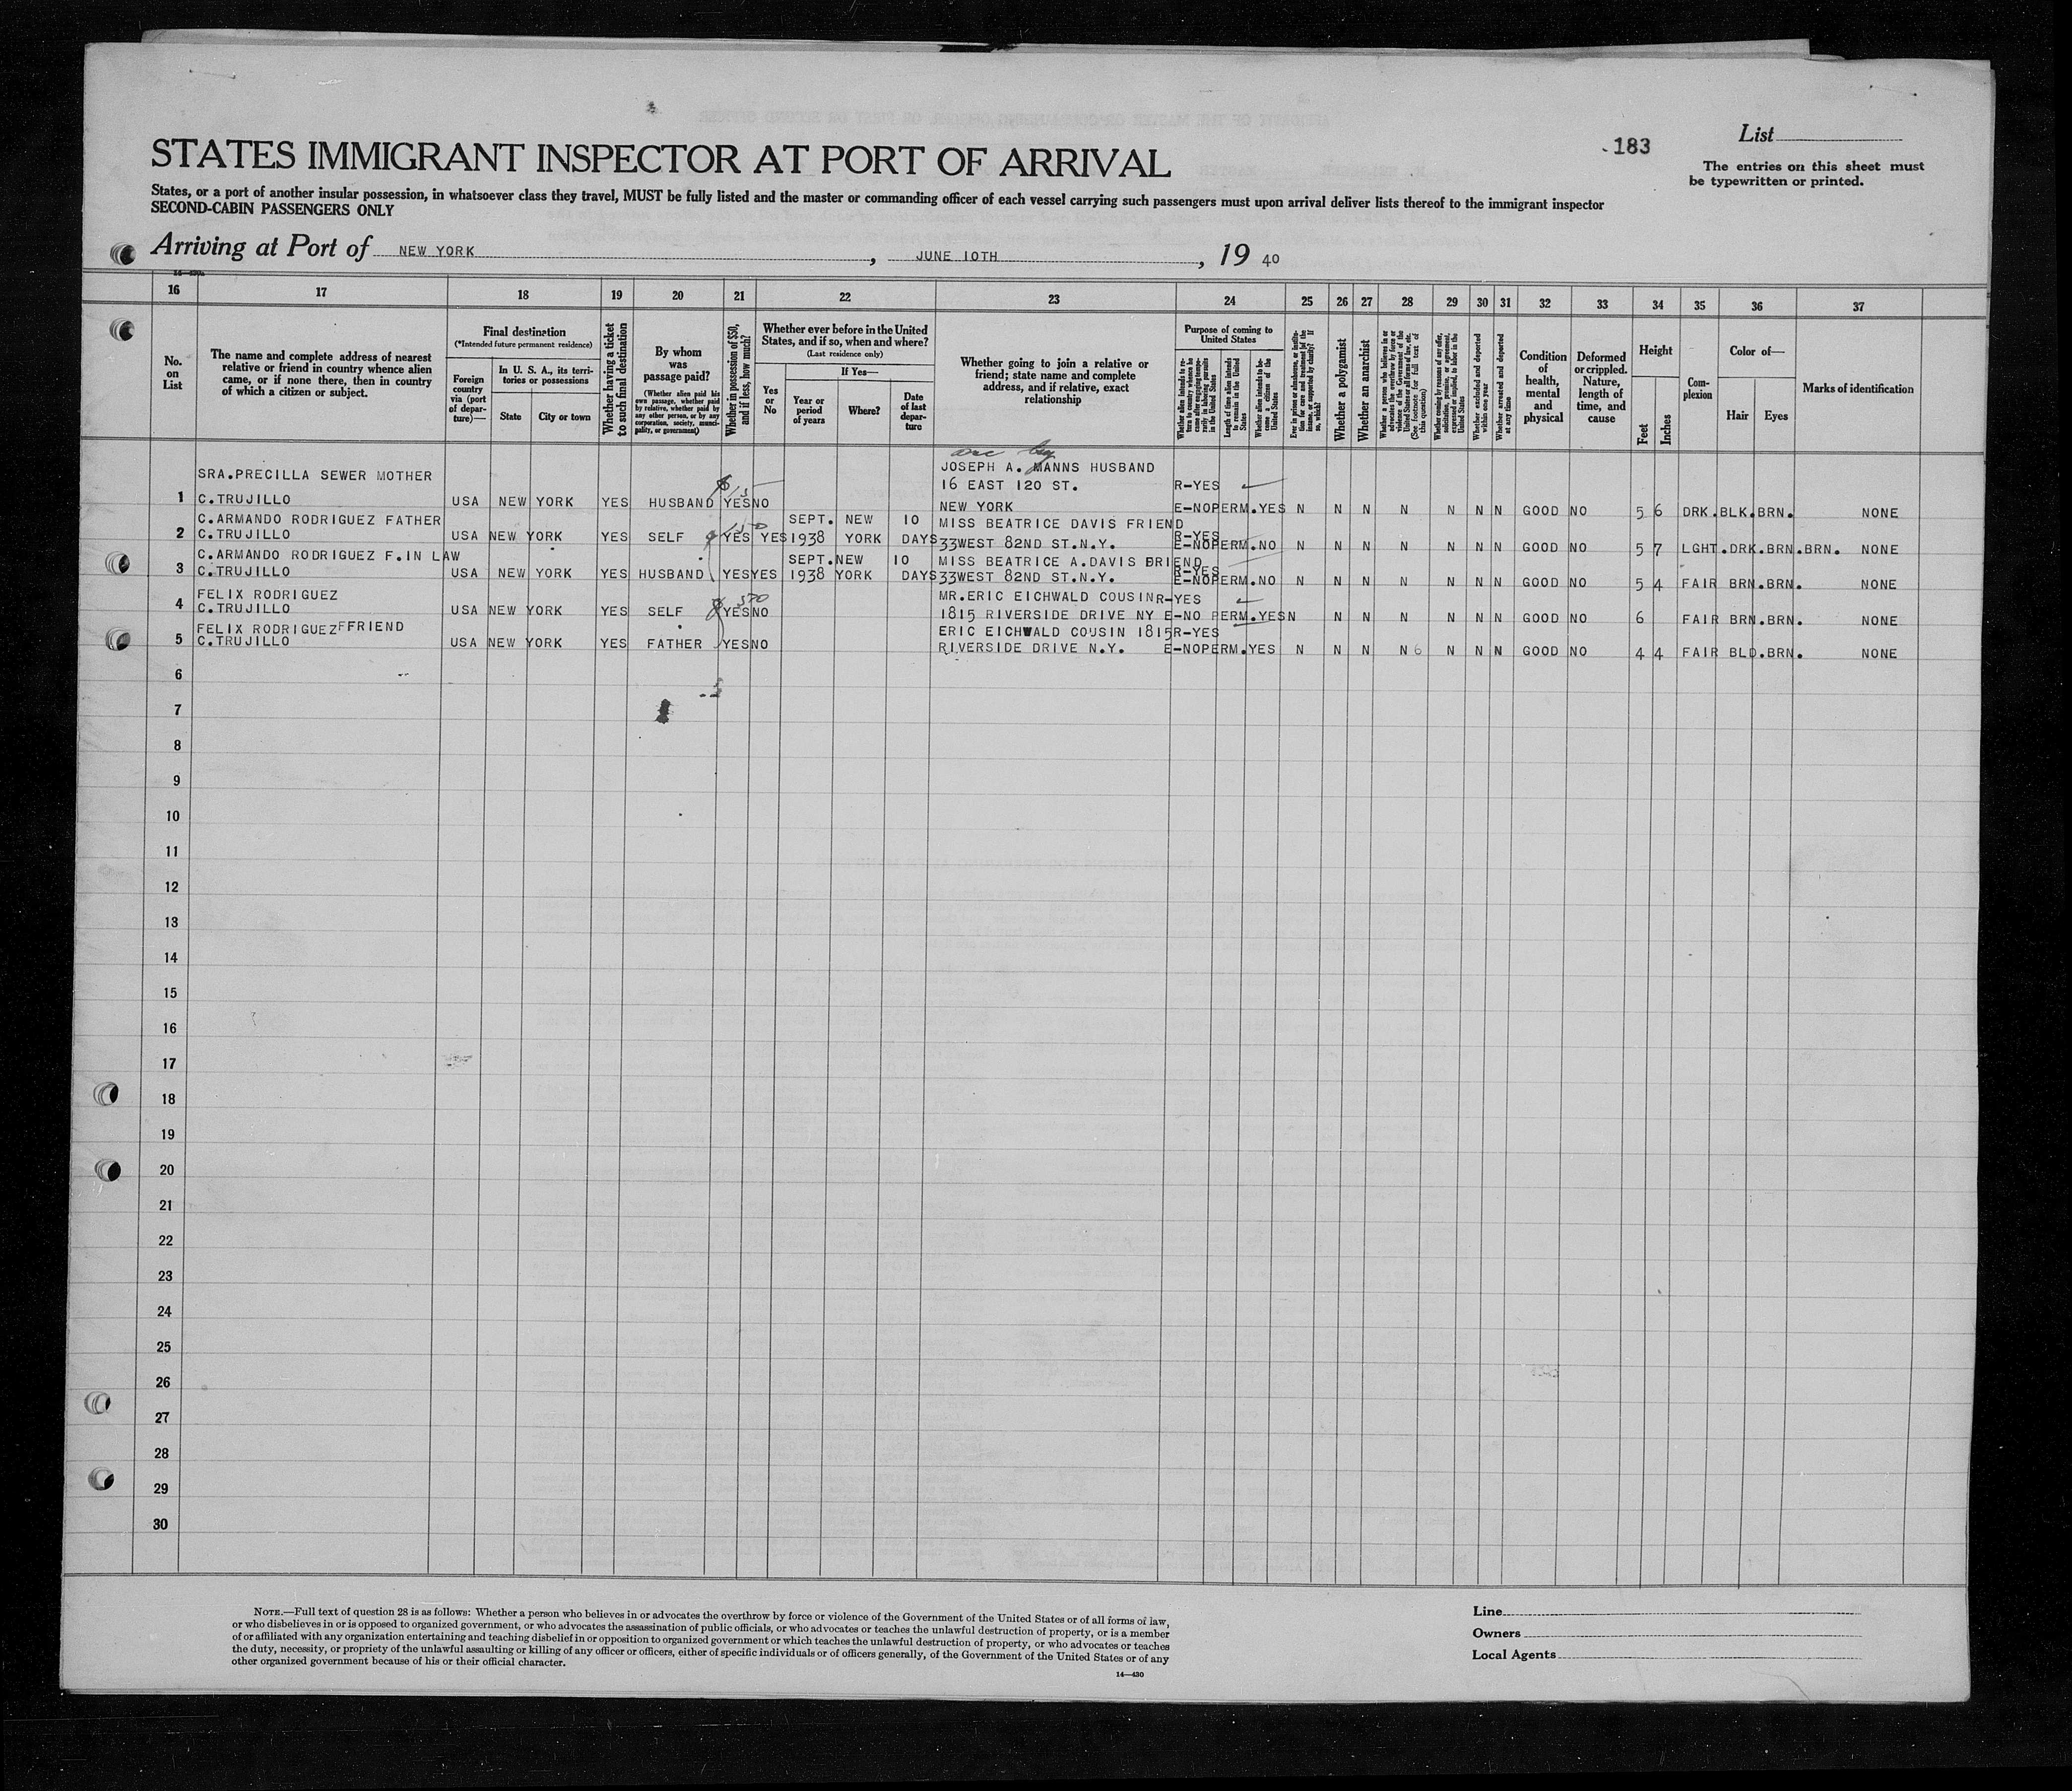 STATES IMMIGRANT INSPECTOR AT PORT OF ARRIVAL
183
List
The entries on this sheet must
be typewritten or printed.
States, or a port of another insular possession, in whatsoever class they travel, MUST be fully listed and the master or commanding officer of each vessel carrying such passengers must upon arrival deliver lists thereof to the immigrant inspector
SECOND-CABIN PASSENGERS ONLY
Arriving at Port of NEW YORK, JUNE 10TH, 19 40
16 17 18 19 20 21 22 23 24 25 26 27 28 29 30 31 32 33 34 35 36 37
No.
on
List
The name and complete address of nearest
relative or friend in country whence alien
came, or if none there, then in country
of which a citizen or subject.
Final destination
(*Intended future permanent residence)
Foreign
country
via (port
of depar-
ture)—
In U. S. A., its terri-
tories or possessions
State
City or town
Whether having a ticket
to such final destination
By whom
was
passage paid?
(Whether alien paid his
own passage, whether paid
by relative, whether paid by
any other person, or by any
corporation, society, munici-
pality, or government)
Whether in possession of $50,
and if less, how much?
Whether ever before in the United
States, and if so, when and where?
(Last residence only)
Yes
or
No
If Yes—
Year or
period
of years
Where?
Date
of last
depar-
ture
Whether going to join a relative or
friend; state name and complete
address, and if relative, exact
relationship
Purpose of coming to
United States
Whether alien intends to re-
turn to country whence he
came after engaging tempo-
rarily in laboring pursuits
in the United States
Length of time alien intends
to remain in the United
States
Whether alien intends to be-
come a citizen of the
United States
Ever in prison or almshouse, or institu-
tion for care and treatment of the
insane, or supported by charity? If
so, which?
Whether a polygamist
Whether an anarchist
Whether a person who believes in or
advocates the overthrow by force or
violence of the Government of the
United States or all forms of law, etc.
(See footnote for full text of
this question)
Whether coming by reasons of any offer,
solicitation, promise, or agreement,
expressed or implied, to labor in the
United States
Whether excluded and deported
within one year
Whether arrested and deported
at any time
Condition
of
health,
mental
and
physical
Deformed
or crippled.
Nature,
length of
time, and
cause
Height
Feet
Inches
Com-
plexion
Color of—
Hair
Eyes
Marks of identification
SRA.PRECILLA SEWER MOTHER JOSEPH A. MANNS HUSBAND
16 EAST 120 ST. R-YES
1 C.TRUJILLO USA NEW YORK YES HUSBAND YES NO NEW YORK E-NO PERM. YES N N N N N N N GOOD NO 5 6 DRK. BLK. BRN. NONE
C.ARMANDO RODRIGUEZ FATHER SEPT. NEW 10 MISS BEATRICE DAVIS FRIEND R-YES
2 C.TRUJILLO USA NEW YORK YES SELF YES YES 1938 YORK DAYS 33WEST 82ND ST.N.Y. E-NO PERM. NO N N N N N N N GOOD NO 5 7 LGHT.DRK.BRN.BRN. NONE
C.ARMANDO RODRIGUEZ F.IN LAW SEPT.NEW 10 MISS BEATRICE A.DAVIS BRIEND R-YES
3 C.TRUJILLO USA NEW YORK YES HUSBAND YES YES 1938 YORK DAYS 33WEST 82ND ST.N.Y. E-NO PERM. NO N N N N N N N GOOD NO 5 4 FAIR BRN.BRN. NONE
FELIX RODRIGUEZ MR.ERIC EICHWALD COUSIN R-YES
4 C.TRUJILLO USA NEW YORK YES SELF YES NO 1815 RIVERSIDE DRIVE NY E-NO PERM. YES N N N N N N N GOOD NO 6 FAIR BRN.BRN. NONE
FELIX RODRIGUEZ FFRIEND ERIC EICHWALD COUSIN 1815 R-YES
5 C.TRUJILLO USA NEW YORK YES FATHER YES NO RIVERSIDE DRIVE N.Y. E-NO PERM. YES N N N N 6 N N N GOOD NO 4 4 FAIR BLD.BRN. NONE
6
7
8
9
10
11
12
13
14
15
16
17
18
19
20
21
22
23
24
25
26
27
28
29
30
NOTE.—Full text of question 28 is as follows: Whether a person who believes in or advocates the overthrow by force or violence of the Government of the United States or of all forms of law,
or who disbelieves in or is opposed to organized government, or who advocates the assassination of public officials, or who advocates or teaches the unlawful destruction of property, or is a member
of or affiliated with any organization entertaining and teaching disbelief in or opposition to organized government or which teaches the unlawful destruction of property, or who advocates or teaches
the duty, necessity, or propriety of the unlawful assaulting or killing of any officer or officers, either of specific individuals or of officers generally, of the Government of the United States or of any
other organized government because of his or their official character.
14—430
Line
Owners
Local Agents